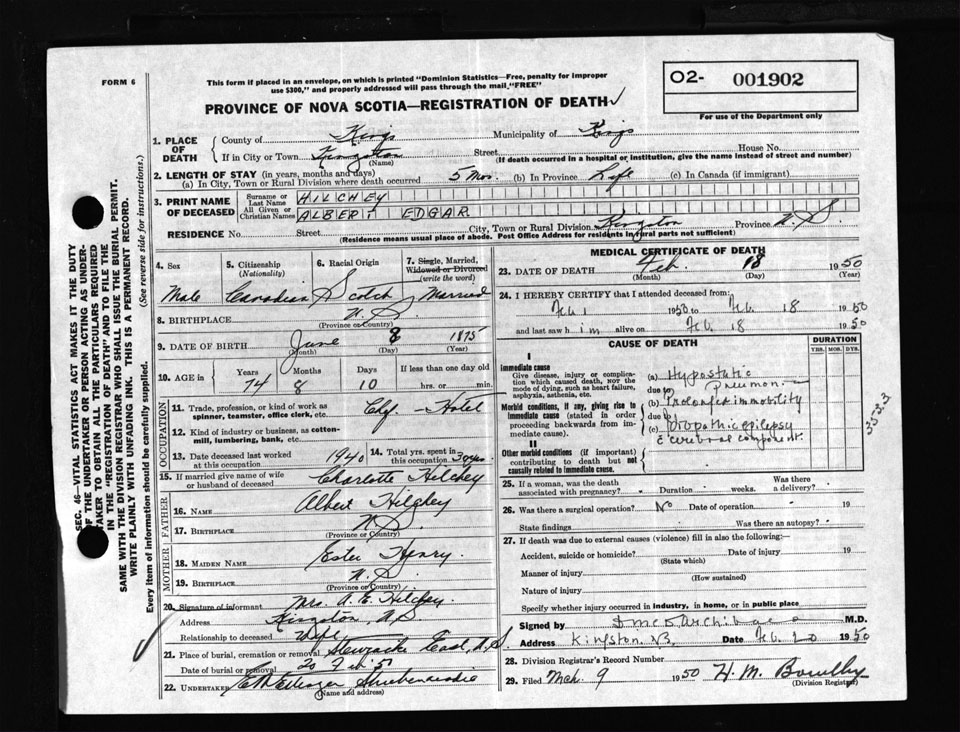 FORM 6
This form if placed in an envelope, on which is printed "Dominion Statistics—Free, penalty for improper
use $300," and properly addressed will pass through the mail "FREE"
O2- 001902
For use of the Department only
PROVINCE OF NOVA SCOTIA—REGISTRATION OF DEATH
1. PLACE OF DEATH
County of Kings Municipality of Kings
If in City or Town Kingston Street House No.
(Name) (If death occurred in a hospital or institution, give the name instead of street and number)
2. LENGTH OF STAY (in years, months and days)
(a) In City, Town or Rural Division where death occurred 5 Mos. (b) In Province Life (c) In Canada (if immigrant)
3. PRINT NAME OF DECEASED
Surname or Last Name HILCHEY
All Given or Christian Names ALBERT EDGAR
RESIDENCE No. Street City, Town or Rural Division Kingston Province N.S.
(Residence means usual place of abode. Post Office Address for residents in rural parts not sufficient)
4. Sex Male
5. Citizenship (Nationality) Canadian
6. Racial Origin Scotch
7. Single, Married, Widowed or Divorced (write the word) Married
8. BIRTHPLACE N.S.
(Province or Country)
9. DATE OF BIRTH June 8 1875
(Month) (Day) (Year)
10. AGE in Years Months Days If less than one day old
74 8 10 hrs. or min.
OCCUPATION
11. Trade, profession, or kind of work as
spinner, teamster, office clerk, etc. Chef - Hotel
12. Kind of industry or business, as cotton-
mill, lumbering, bank, etc.
13. Date deceased last worked
at this occupation 1940
14. Total yrs. spent in
this occupation 30 yrs
15. If married give name of wife
or husband of deceased Charlotte Hilchey
FATHER
16. NAME Albert Hilchey
17. BIRTHPLACE N.S.
(Province or Country)
MOTHER
18. MAIDEN NAME Ester Henry.
19. BIRTHPLACE N.S.
(Province or Country)
20. Signature of informant Mrs. A. E. Hilchey.
Address Kingston, N.S.
Relationship to deceased Wife
21. Place of burial, cremation or removal Stewiacke East, N.S.
Date of burial or removal 20
22. UNDERTAKER Shubenacadie
(Name and address)
MEDICAL CERTIFICATE OF DEATH
23. DATE OF DEATH Feb. 18 1950
(Month) (Day) (Year)
24. I HEREBY CERTIFY that I attended deceased from:
Feb 1 1950 to Feb. 18 1950
and last saw him alive on Feb. 18 1950
CAUSE OF DEATH DURATION
YRS. MOS. DYS.
I
Immediate cause
Give disease, injury or complication which caused death, NOT the mode of dying, such as heart failure, asphyxia, asthenia, etc.
(a) Hypostatic
due to Pneumonia
Morbid conditions, if any, giving rise to immediate cause (stated in order proceeding backwards from immediate cause).
(b) Prolonged immobility
due to
(c) Idiopathic epilepsy
c cerebral component.
II
Other morbid conditions (if important) contributing to death but not causally related to immediate cause.
25. If a woman, was the death
associated with pregnancy? Duration weeks. Was there a delivery?
26. Was there a surgical operation? No Date of operation 19
State findings Was there an autopsy?
27. If death was due to external causes (violence) fill in also the following:—
Accident, suicide or homicide? Date of injury 19
(State which)
Manner of injury
(How sustained)
Nature of injury
Specify whether injury occurred in industry, in home, or in public place
Signed by M.D.
Address Kingston, N.S. Date Feb. 20 1950
28. Division Registrar's Record Number
29. Filed Mch. 9 1950 H. M. Bowlby
(Division Registrar)
SEC. 46—VITAL STATISTICS ACT MAKES IT THE DUTY
OF THE UNDERTAKER OR PERSON ACTING AS UNDER-
TAKER TO OBTAIN ALL THE PARTICULARS REQUIRED
IN THE "REGISTRATION OF DEATH" AND TO FILE THE
SAME WITH THE DIVISION REGISTRAR WHO SHALL ISSUE THE BURIAL PERMIT.
WRITE PLAINLY WITH UNFADING INK. THIS IS A PERMANENT RECORD.
Every item of information should be carefully supplied. (See reverse side for instructions.)